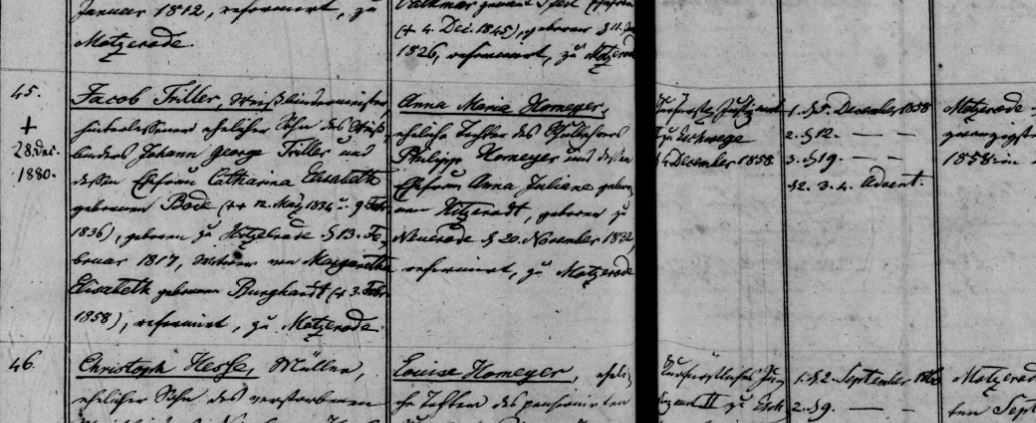 Januar 1812, reformiert, zu
Motzerode.
(+ 4. Dec. 1845), geboren
1826, reformiert, zu Motzerod
45.
+
28. Dec.
1880.
Jacob Triller, Weißbindermeister,
hinterlassener ehelicher Sohn des Weiß,
binders Johann George Triller und
dessen Ehefrau Catharina Elisabeth
geborenen Bode (++ 12. May 1834 u. 9. Febr
1836), geboren zu Motzerode d 13. Fe,
bruar 1817, Witwer von Margaretha
Elisabeth geborenen Burghardt (+ 3. Febr
1858), reformiert, zu Motzerode.
Anna Maria Homeyer,
eheliche Tochter des
Philipp Homeyer und dessen
Ehefrau Anna Juliane gebor,
nen Hitzerodt, geboren zu
Neuerode d 20. November 1832,
reformiert, zu Motzerode
zu Eschwege
December 1858.
1. d 5. December 1858
2. d 12. — —
3. d 19. — —
d 2. 3. 4. Advent.
Motzerode
1858 in
46.
Christoph Hesse, Müller,
ehelicher Sohn des verstorbenen
Louise Homeyer, eheli,
che Tochter des pensionirten
Kurfürstliches Ju,
II zu Esch
1. d 2. September
2. d 9. — —
Motzerod
ten Sept